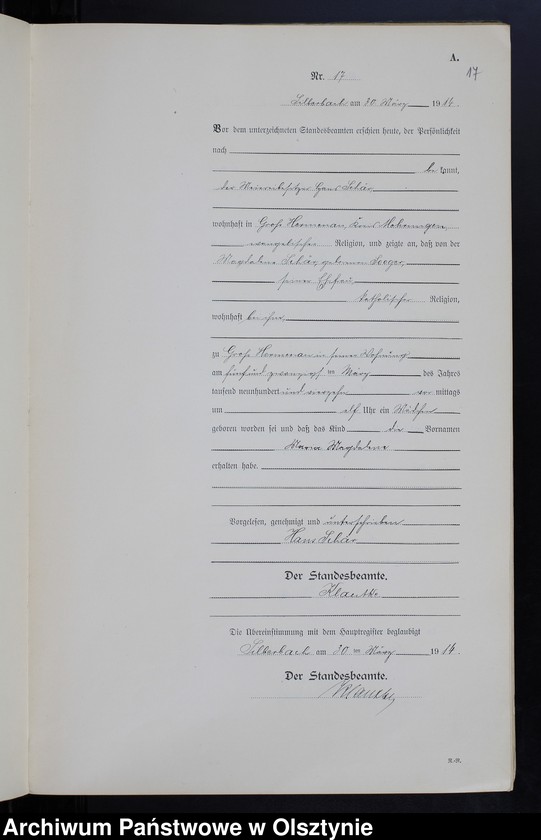 A.
17
Nr. 17
Silberbach am 30 März 1914.
Vor dem unterzeichneten Standesbeamten erschien heute, der Persönlichkeit
nach
bekannt,
der Meiereibesitzer Hans Schär
wohnhaft in Groß Hermenau, Kreis Mohrungen,
evangelischer Religion, und zeigte an, daß von der
Magdalena Schär, geborenen Seeger,
seiner Ehefrau
katholischer Religion,
wohnhaft bei ihm,
zu Groß Hermenau in seiner Wohnung
am fünfundzwanzigsten März des Jahres
tausend neunhundert und vierzehn vormittags
um elf Uhr ein Mädchen
geboren worden sei und daß das Kind die Vornamen
Maria Magdalena
erhalten habe.
Vorgelesen, genehmigt und unterschrieben
Hans Schär
Der Standesbeamte.
Klautke
Die Übereinstimmung mit dem Hauptregister beglaubigt
Silberbach am 30 ten März 1914.
Der Standesbeamte.
Klautke
Archiwum Państwowe w Olsztynie